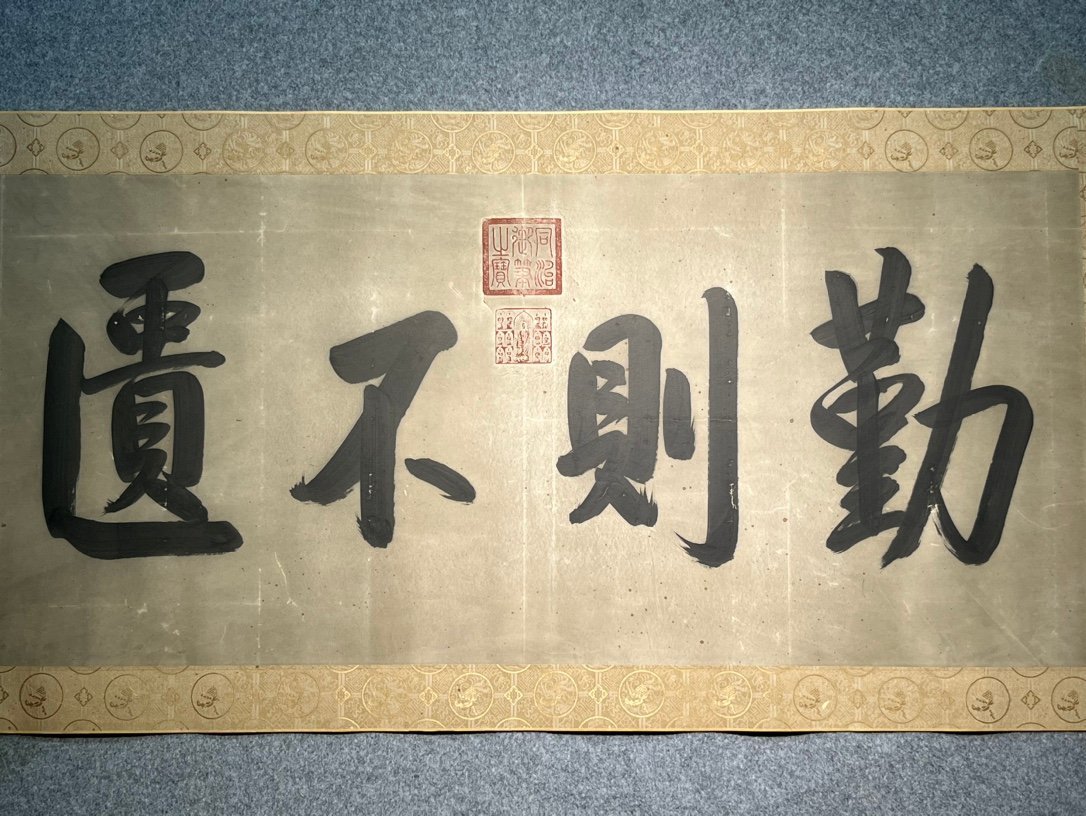 勤則不匱
同治御筆之寶